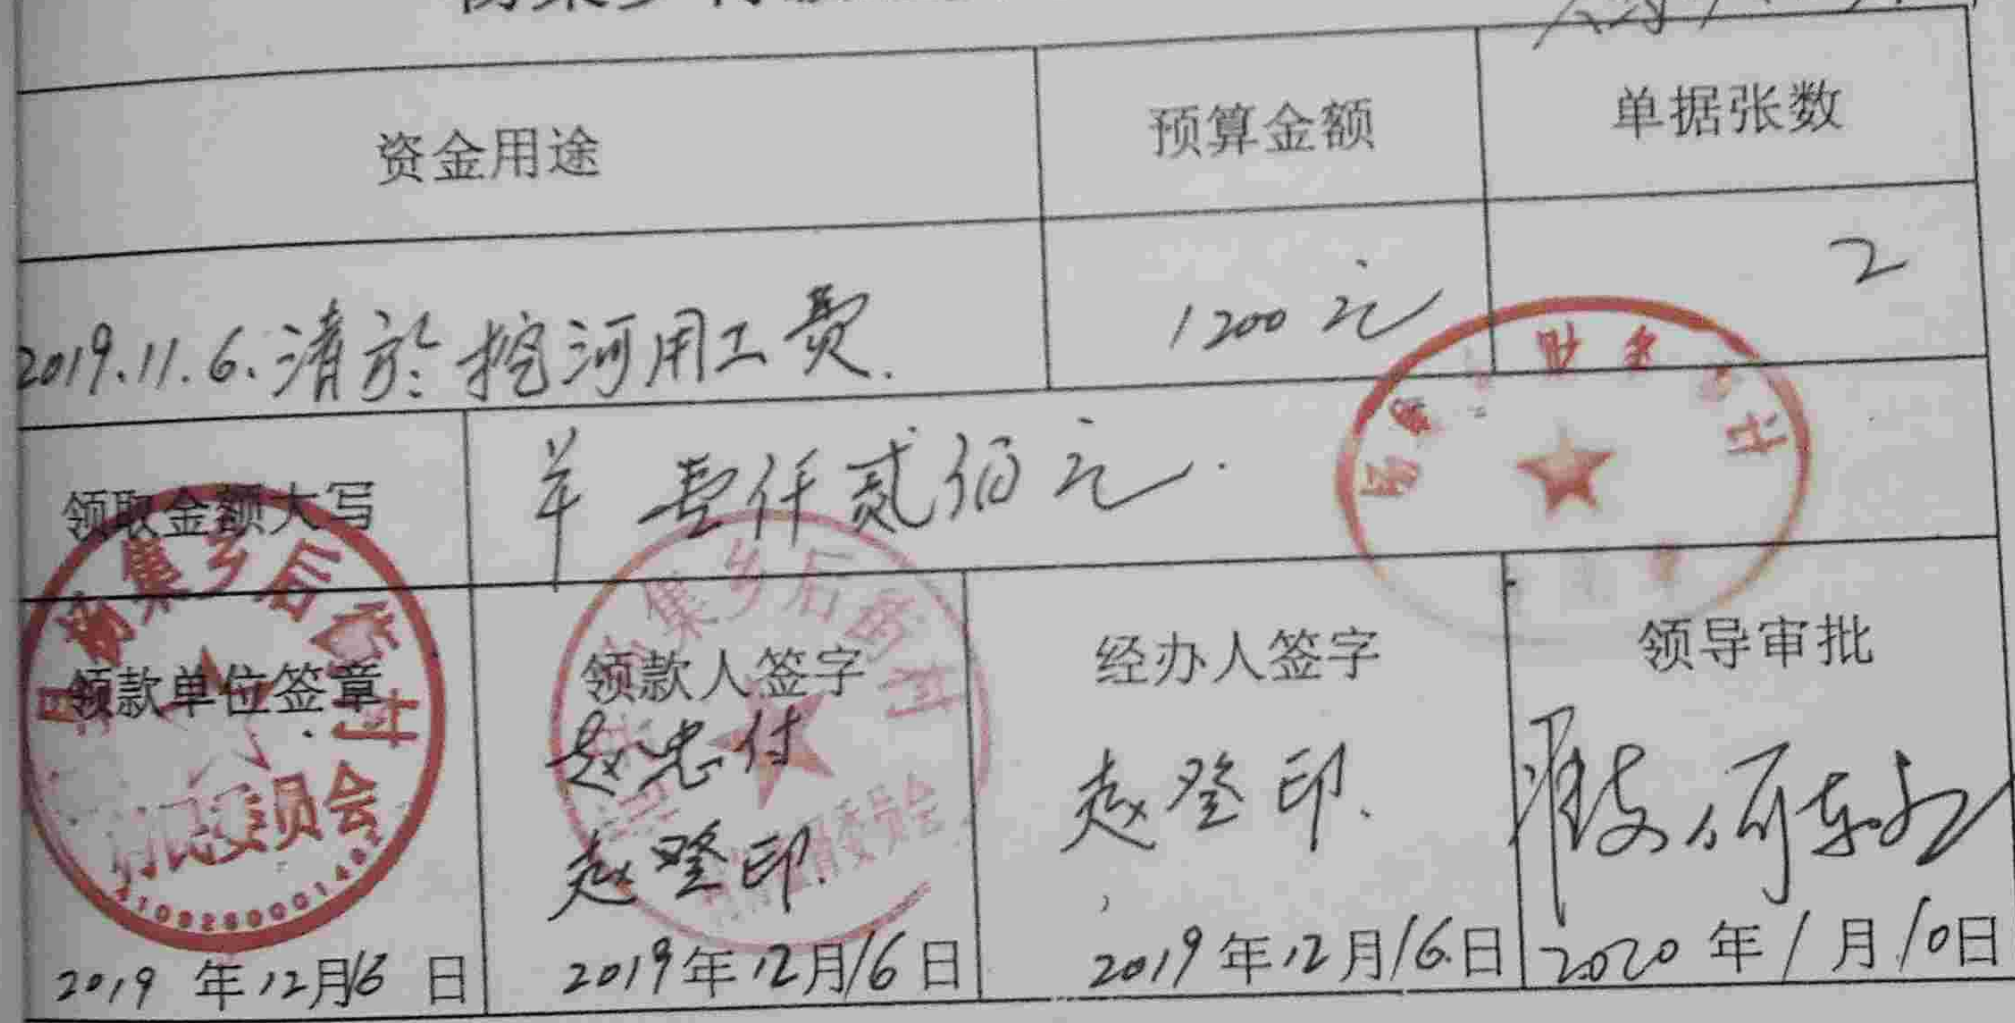 资金用途 预算金额 单据张数
2019.11.6.清於挖河用工费. 1200元 2
领取金额大写 壹仟贰佰元.
集乡后
村民委员会
集乡后
委员会
财 计
领款单位签章 领款人签字 经办人签字 领导审批
赵忠付
赵登印. 赵登印.
2019年12月16日 2019年12月16日 2019年12月16日 2020年1月10日